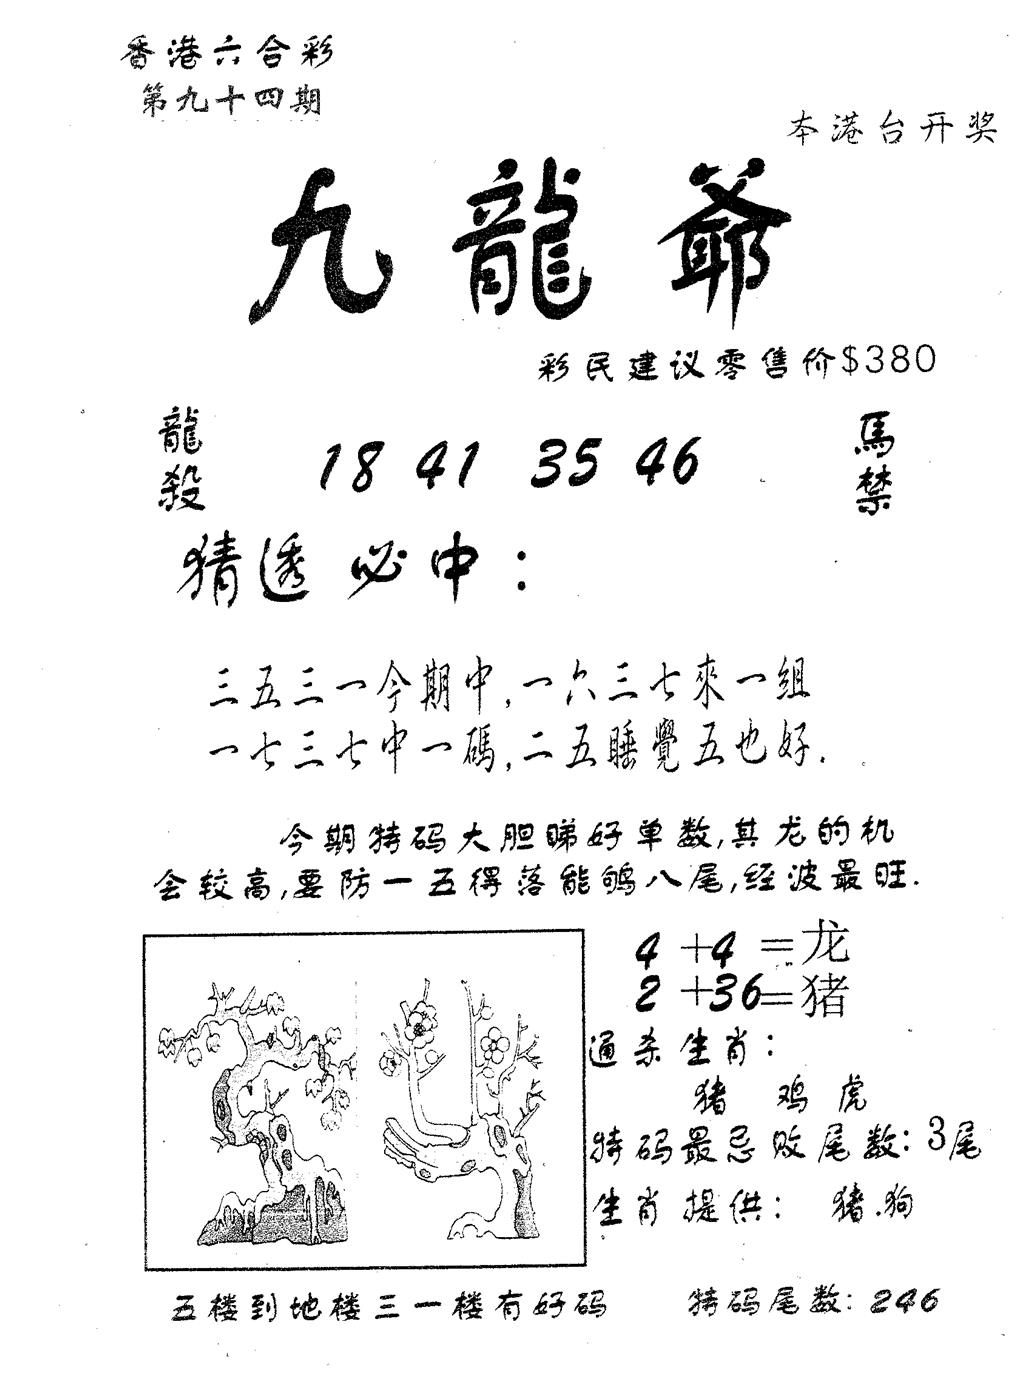 香港六合彩
第九十四期
本港台开奖
九龍爺
彩民建议零售价$380
龍殺
18 41 35 46
馬禁
猜透必中：
三五三一今期中,一六三七來一组
一七三七中一碼,二五睡覺五也好.
今期特码大胆睇好单数,其龙的机
会较高,要防一五得落能鸲八尾,经波最旺.
4+4=龙
2+36=猪
通杀生肖：
猪 鸡 虎
特码最忌败尾数：3尾
生肖提供： 猪.狗
五楼到地楼三一楼有好码
特码尾数：246